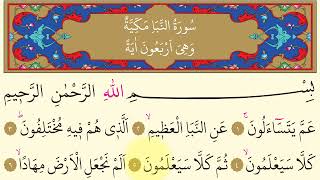 سُورَةُ النَّبَأِ مَكِّيَّةٌ
وَهِيَ اَرْبَعُونَ اٰيَةً
بِسْمِ اللّٰهِ الرَّحْمٰنِ الرَّحِيمِ
عَمَّ يَتَسَٓاءَلُونَۚ ﴿١﴾ عَنِ النَّبَأِ الْعَظِيمِۙ ﴿٢﴾ اَلَّذِى هُمْ فِيهِ مُخْتَلِفُونَۜ ﴿٣﴾
كَلَّا سَيَعْلَمُونَۙ ﴿٤﴾ ثُمَّ كَلَّا سَيَعْلَمُونَ ﴿٥﴾ اَلَمْ نَجْعَلِ الْاَرْضَ مِهَادًاۙ ﴿٦﴾